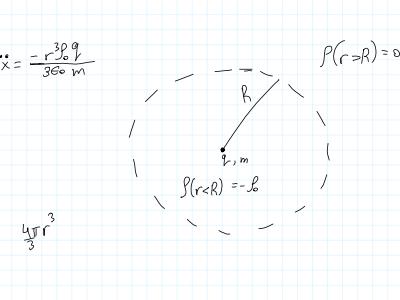 ẍ = -r³ρ₀q / 3ε₀ m
ρ(r>R) = 0
R
q, m
ρ(r<R) = -ρ₀
4π/3 r³